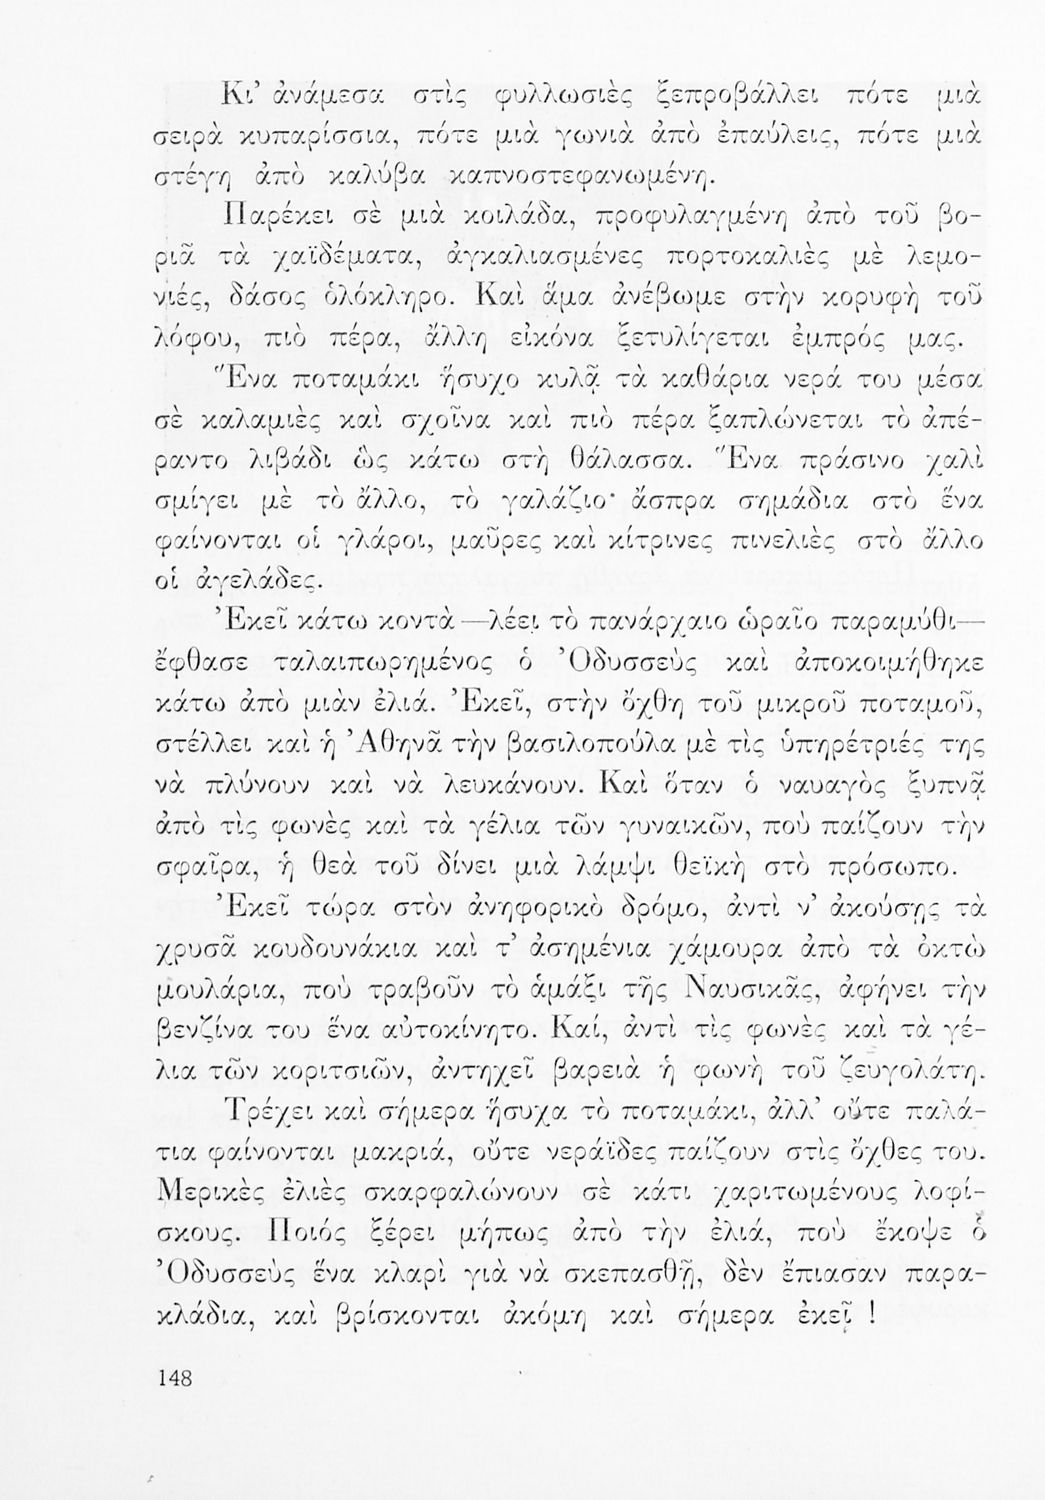 Κι’ ἀνάμεσα στὶς φυλλωσιὲς ξεπροβάλλει πότε μιὰ
σειρὰ κυπαρίσσια, πότε μιὰ γωνιὰ ἀπὸ ἐπαύλεις, πότε μιὰ
στέγη ἀπὸ καλύβα καπνοστεφανωμένη.
Παρέκει σὲ μιὰ κοιλάδα, προφυλαγμένη ἀπὸ τοῦ βο-
ριᾶ τὰ χαϊδέματα, ἀγκαλιασμένες πορτοκαλιὲς μὲ λεμο-
νιές, δάσος ὁλόκληρο. Καὶ ἅμα ἀνέβωμε στὴν κορυφὴ τοῦ
λόφου, πιὸ πέρα, ἄλλη εἰκόνα ξετυλίγεται ἐμπρός μας.
Ἕνα ποταμάκι ἥσυχο κυλᾷ τὰ καθάρια νερά του μέσα
σὲ καλαμιὲς καὶ σχοῖνα καὶ πιὸ πέρα ξαπλώνεται τὸ ἀπέ-
ραντο λιβάδι ὣς κάτω στὴ θάλασσα. Ἕνα πράσινο χαλὶ
σμίγει μὲ τὸ ἄλλο, τὸ γαλάζιο· ἄσπρα σημάδια στὸ ἕνα
φαίνονται οἱ γλάροι, μαῦρες καὶ κίτρινες πινελιὲς στὸ ἄλλο
οἱ ἀγελάδες.
Ἐκεῖ κάτω κοντὰ —λέει τὸ πανάρχαιο ὡραῖο παραμύθι—
ἔφθασε ταλαιπωρημένος ὁ Ὀδυσσεὺς καὶ ἀποκοιμήθηκε
κάτω ἀπὸ μιὰν ἐλιά. Ἐκεῖ, στὴν ὄχθη τοῦ μικροῦ ποταμοῦ,
στέλλει καὶ ἡ Ἀθηνᾶ τὴν βασιλοπούλα μὲ τὶς ὑπηρέτριές της
νὰ πλύνουν καὶ νὰ λευκάνουν. Καὶ ὅταν ὁ ναυαγὸς ξυπνᾷ
ἀπὸ τὶς φωνὲς καὶ τὰ γέλια τῶν γυναικῶν, ποὺ παίζουν τὴν
σφαῖρα, ἡ θεὰ τοῦ δίνει μιὰ λάμψι θεϊκὴ στὸ πρόσωπο.
Ἐκεῖ τώρα στὸν ἀνηφορικὸ δρόμο, ἀντὶ ν’ ἀκούσῃς τὰ
χρυσᾶ κουδουνάκια καὶ τ’ ἀσημένια χάμουρα ἀπὸ τὰ ὀκτὼ
μουλάρια, ποὺ τραβοῦν τὸ ἁμάξι τῆς Ναυσικᾶς, ἀφήνει τὴν
βενζίνα του ἕνα αὐτοκίνητο. Καί, ἀντὶ τὶς φωνὲς καὶ τὰ γέ-
λια τῶν κοριτσιῶν, ἀντηχεῖ βαρειὰ ἡ φωνὴ τοῦ ζευγολάτη.
Τρέχει καὶ σήμερα ἥσυχα τὸ ποταμάκι, ἀλλ’ οὔτε παλά-
τια φαίνονται μακριά, οὔτε νεράϊδες παίζουν στὶς ὄχθες του.
Μερικὲς ἐλιὲς σκαρφαλώνουν σὲ κάτι χαριτωμένους λοφί-
σκους. Ποιός ξέρει μήπως ἀπὸ τὴν ἐλιά, ποὺ ἔκοψε ὁ
Ὀδυσσεὺς ἕνα κλαρὶ γιὰ νὰ σκεπασθῇ, δὲν ἔπιασαν παρα-
κλάδια, καὶ βρίσκονται ἀκόμη καὶ σήμερα ἐκεῖ !
148